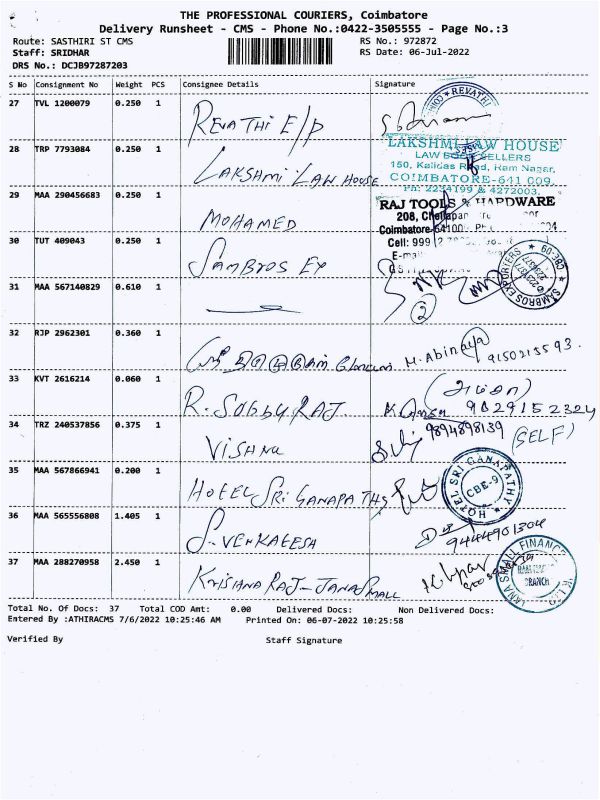 THE PROFESSIONAL COURIERS, Coimbatore
Delivery Runsheet - CMS - Phone No.:0422-3505555 - Page No.:3
Route: SASTHIRI ST CMS RS No.: 972872
Staff: SRIDHAR RS Date: 06-Jul-2022
DRS No.: DCJB97287203
S No Consignment No Weight PCS Consignee Details Signature
27 TVL 1200079 0.250 1 REVATHI E/P
REVATHI
28 TRP 7793084 0.250 1 LAKSHMI LAW HOUSE
LAKSHMI LAW HOUSE
LAW BOOK SELLERS
150, Kalidas Road, Ram Nagar,
COIMBATORE-641 009.
Ph: 2234199 & 4272003.
29 MAA 290456683 0.250 1 MOHAMED
RAJ TOOLS & HARDWARE
208,
Coimbatore
Cell: 999
30 TUT 409043 0.250 1 SAMBROS EX
SAMBROS EXPORTERS ★ CBE-09 ★
31 MAA 567140829 0.610 1
2
32 RJP 2962301 0.360 1
ஸ்ரீ M. Abinaya 9150215593.
33 KVT 2616214 0.060 1 R. SUBBU RAJ
9029152324
34 TRZ 240537856 0.375 1 VISHNU
9894898139 (SELF)
35 MAA 567866941 0.200 1 HOTEL SRI GANAPATHY
HOTEL SRI GANAPATHY
CBE-9
36 MAA 565556808 1.405 1 S. VENKATESH
9444901304
37 MAA 288270958 2.450 1 KRISHNA RAJ - JANA SMALL
JANA SMALL FINANCE
BRANCH
Total No. Of Docs: 37 Total COD Amt: 0.00 Delivered Docs: Non Delivered Docs:
Entered By :ATHIRACMS 7/6/2022 10:25:46 AM Printed On: 06-07-2022 10:25:58
Verified By Staff Signature